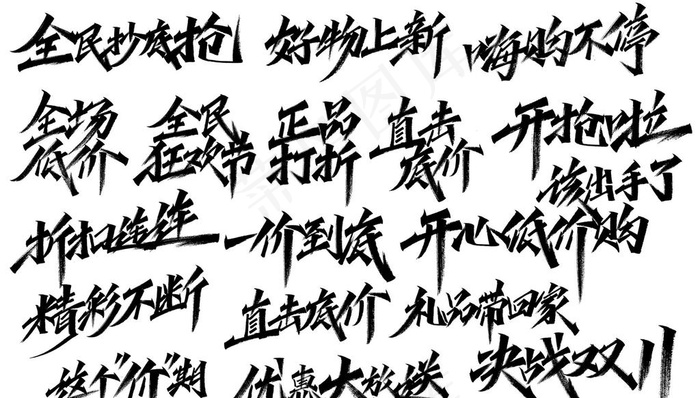 全民抄底抢 好物上新 嗨购不停
全场 全民 正品 直击 开抢啦
低价 狂欢节 打折 底价 该出手了
折扣连连 一价到底 开心低价购
精彩不断 直击底价 礼品带回家
这个“价”期 优惠大放送 决战双11